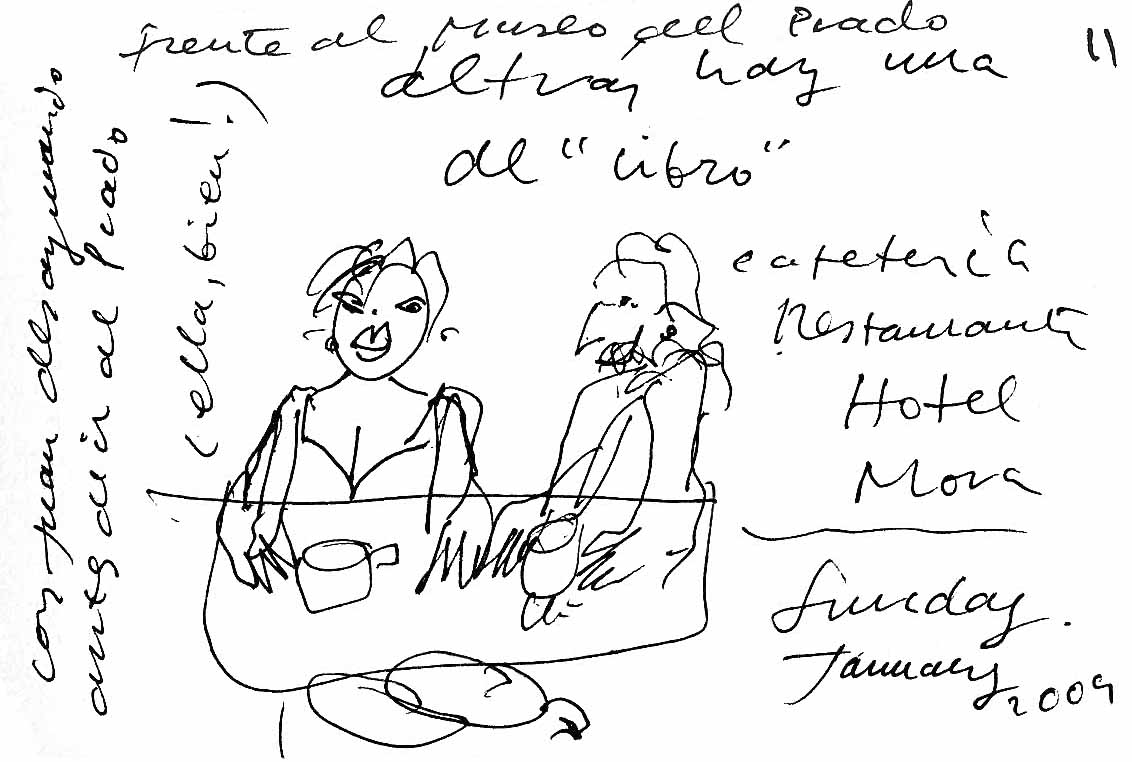 frente al museo del Prado
11
detrás hay una
de "libro"
cafetería
Restaurante
Hotel
Mora
Sunday.
January
2009
con Juan desayunando
antes de ir al Prado
(ella, bien!)